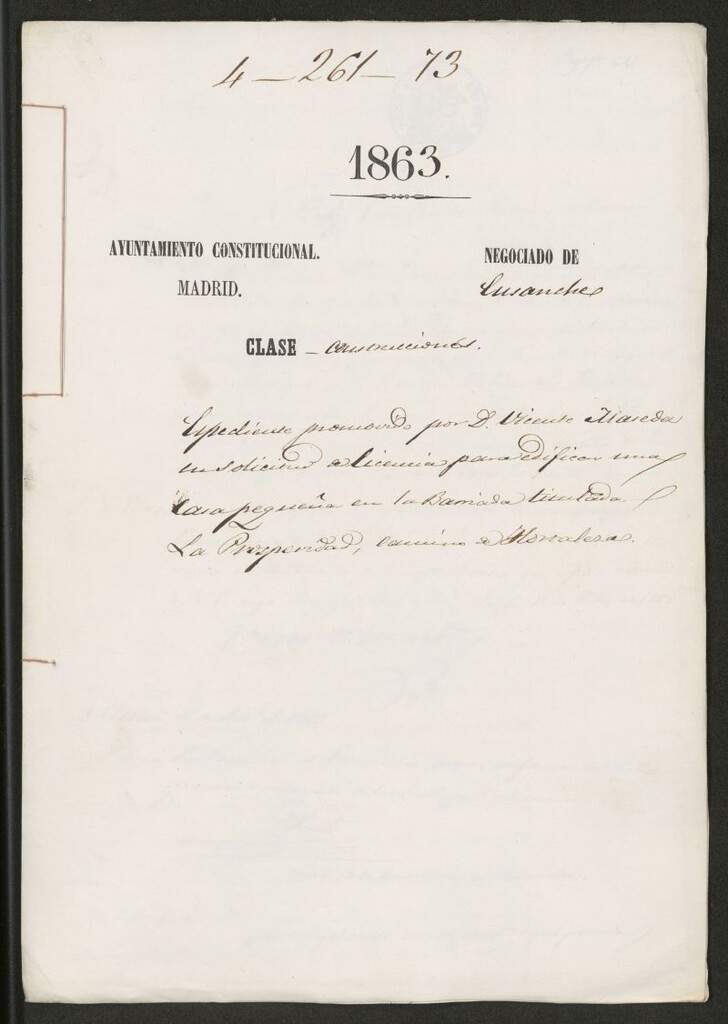 4 - 261 - 73
1863.
AYUNTAMIENTO CONSTITUCIONAL.
MADRID.
NEGOCIADO DE
Ensanche
CLASE - Construcciones.
Espediente promovido por D. Vicente Maseda
en solicitud de licencia para edificar una
casa pequeña en la Barriada titulada
La Prosperidad, camino de Hortaleza.